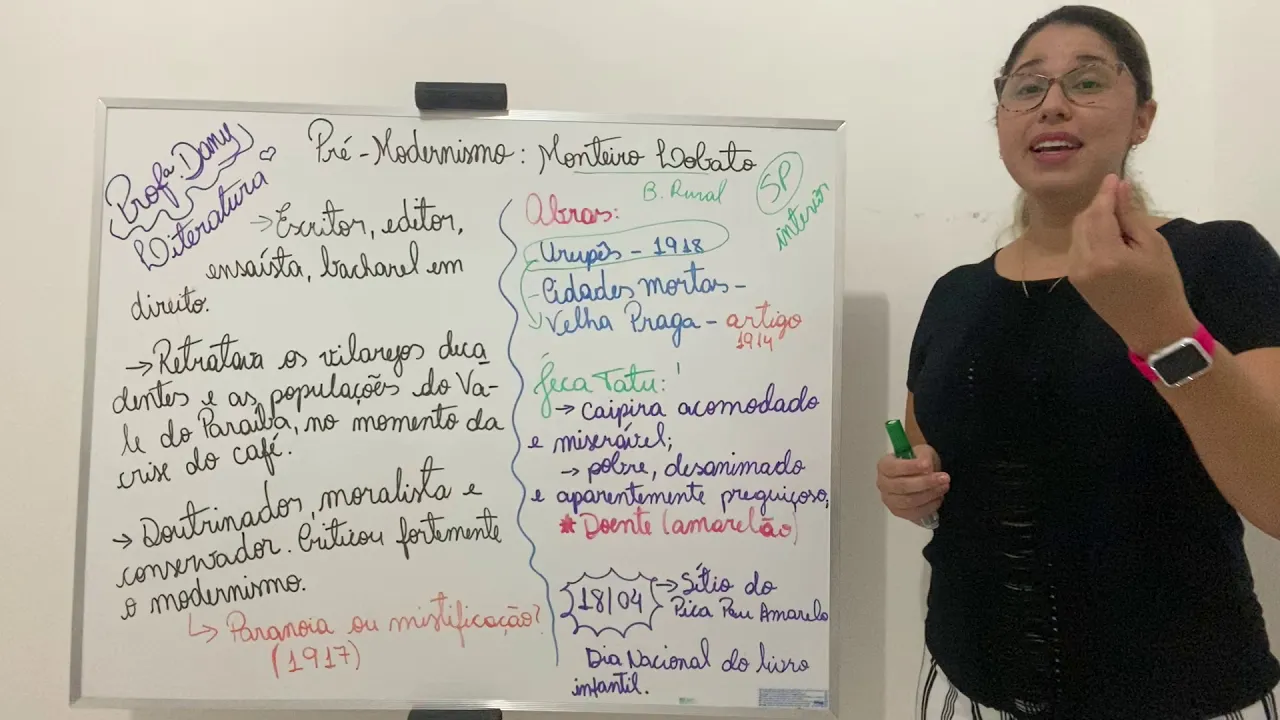 Pré-Modernismo: Monteiro Lobato
Profª. Dany
Literatura
→ Escritor, editor,
ensaísta, bacharel em
direito.
→ Retratava os vilarejos deca
dentes e as populações do Va-
le do Paraíba, no momento da
crise do café.
→ Doutrinador, moralista e
conservador. Criticou fortemente
o modernismo.
↳ Paranoia ou mistificação?
(1917)
B. Rural
SP
interior
Obras:
Urupês - 1918
- Cidades mortas -
Velha Praga - artigo
1914
Jeca Tatu:
→ caipira acomodado
e miserável;
→ pobre, desanimado
e aparentemente preguiçoso,
* Doente (amarelão)
18/04 → Sítio do
Pica Pau Amarelo
Dia Nacional do livro
infantil.